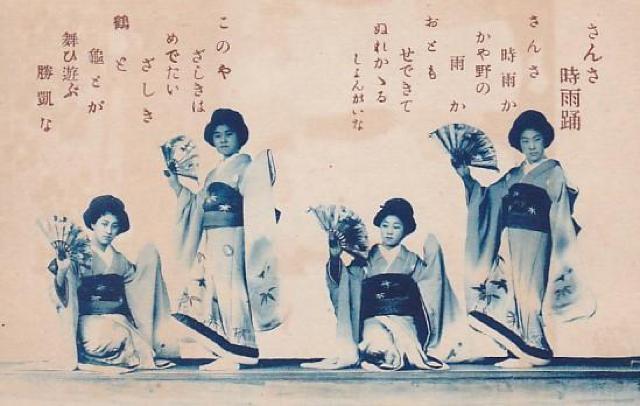 さんさ
時雨踊
さんさ
時雨か
かや野の
雨か
おとも
せできて
ぬれかゝる
しよんがいな
このや
ざしきは
めでたい
ざしき
鶴と
龜とが
舞ひ遊ぶ
勝凱な